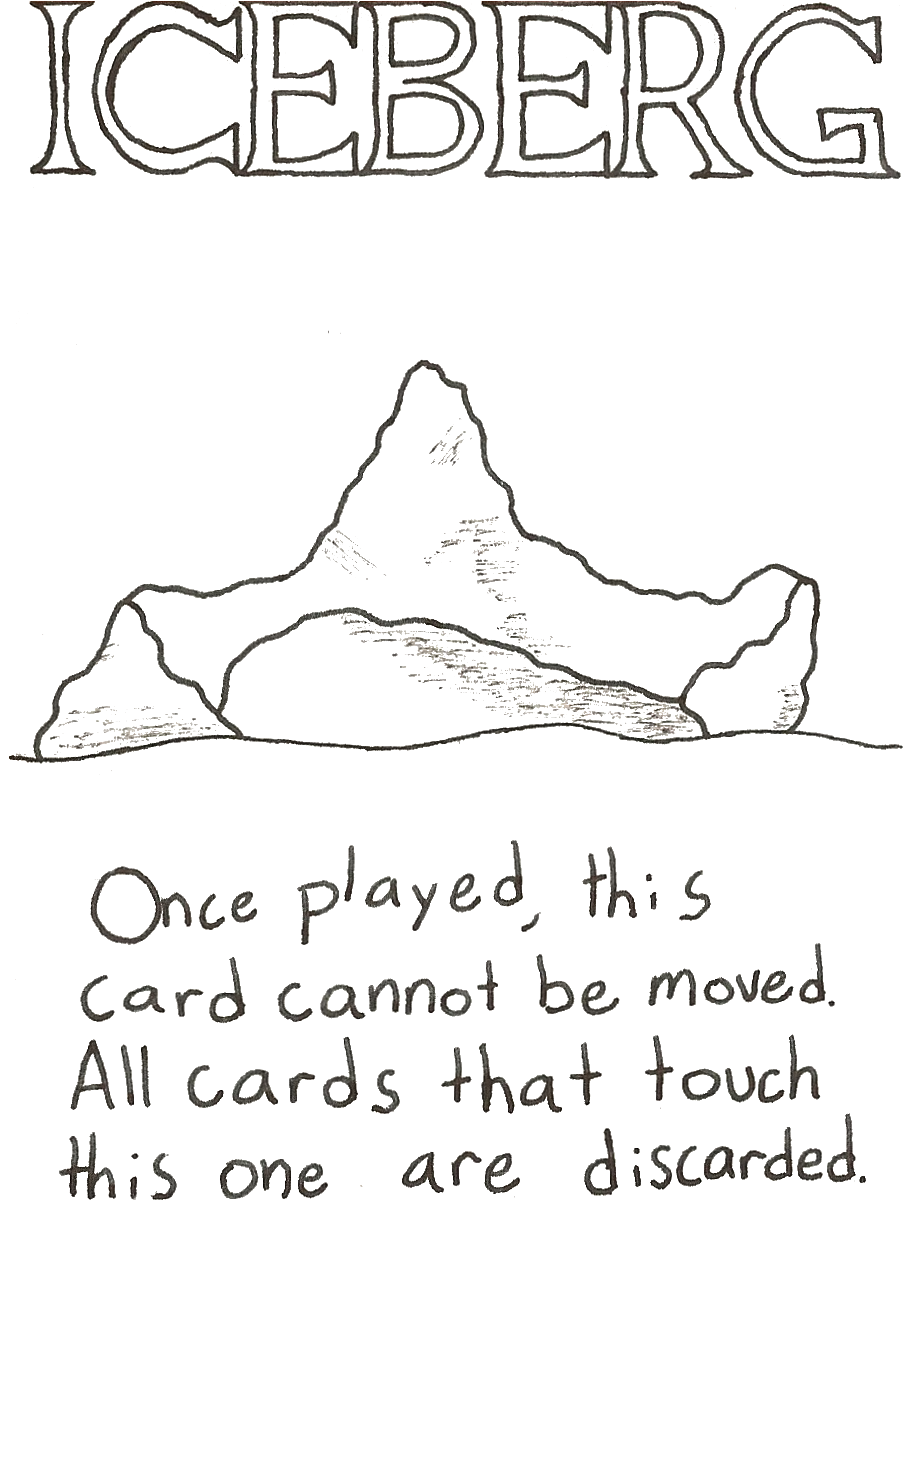 ICEBERG
Once played, this
card cannot be moved.
All cards that touch
this one are discarded.